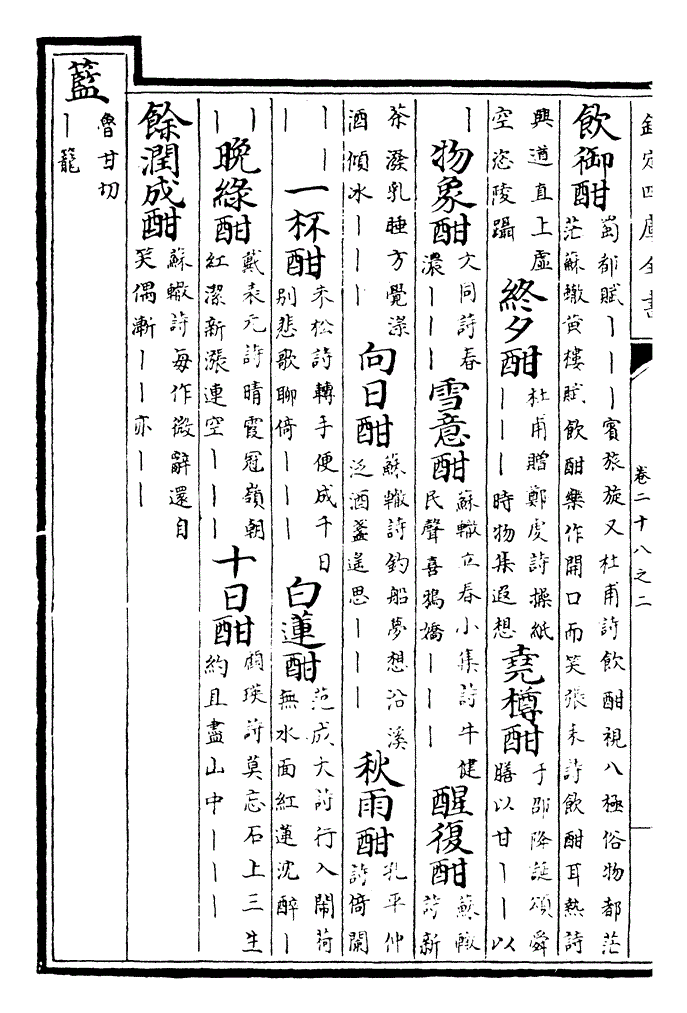 欽定四庫全書
卷二十八之二
飲御酣
蜀都賦丨丨丨賓旅旋又杜甫詩飲酣視八極俗物都茫
茫蘇轍黄樓賦飲酣樂作開口而笑張耒詩飲酣耳熱詩
興道直上虛
空恣陵躡
終夕酣
杜甫贈鄭虔詩操紙
丨丨丨時物集遐想
堯樽酣
于邵降誕頌舜
膳以甘丨丨以
丨
物象酣
文同詩春
濃丨丨丨
雪意酣
蘇轍立春小集詩牛健
民聲喜鴉嬌丨丨丨
醒復酣
蘇轍
詩新
茶潑乳睡方覺深
酒傾冰丨丨丨
向日酣
蘇轍詩釣船夢想沿溪
泛酒盞遙思丨丨丨
秋雨酣
孔平仲
詩倚闌
丨丨
丨
一杯酣
朱松詩轉手便成千日
別悲歌聊倚丨丨丨
白蓮酣
范成大詩行入閙荷
無水面紅蓮沈醉丨
丨
丨
晚綠酣
戴表元詩晴霞冠嶺朝
紅潔新漲連空丨丨丨
十日酣
顧瑛詩莫忘石上三生
約且盡山中丨丨丨
餘潤成酣
蘇轍詩每作微辭還自
笑偶漸丨丨亦丨丨
藍
魯甘切
丨籠